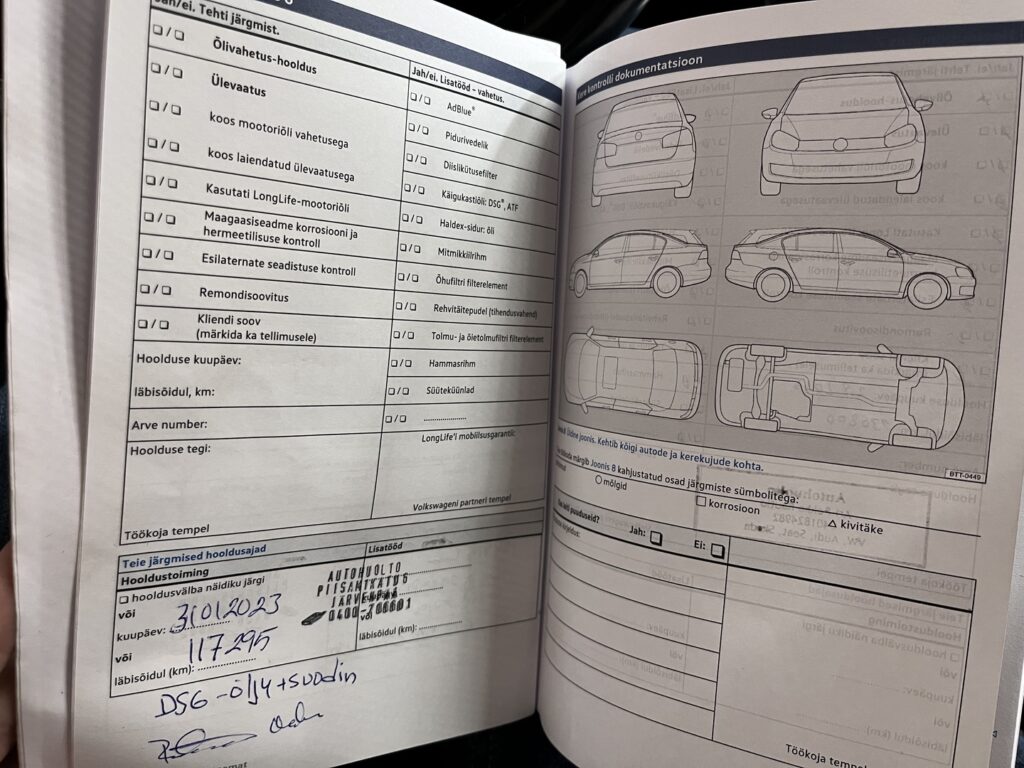 Jah/ei. Tehti järgmist.
❏ / ❏ Õlivahetus-hooldus
❏ / ❏ Ülevaatus
❏ / ❏ koos mootoriõli vahetusega
❏ / ❏ koos laiendatud ülevaatusega
❏ / ❏ Kasutati LongLife-mootoriõli
❏ / ❏ Maagaasiseadme korrosiooni ja
hermeetilisuse kontroll
❏ / ❏ Esilaternate seadistuse kontroll
❏ / ❏ Remondisoovitus
❏ / ❏ Kliendi soov
(märkida ka tellimusele)
Hoolduse kuupäev:
läbisõidul, km:
Arve number:
Hoolduse tegi:
Töökoja tempel
Jah/ei. Lisatööd – vahetus.
❏ / ❏ AdBlue®
❏ / ❏ Pidurivedelik
❏ / ❏ Diislikütusefilter
❏ / ❏ Käigukastiõli: DSG®, ATF
❏ / ❏ Haldex-sidur: õli
❏ / ❏ Mitmikkiilrihm
❏ / ❏ Õhufiltri filterelement
❏ / ❏ Rehvitäitepudel (tihendusvahend)
❏ / ❏ Tolmu- ja õietolmufiltri filterelement
❏ / ❏ Hammasrihm
❏ / ❏ Süüteküünlad
❏ / ❏ ....................
LongLife'i mobiilsusgarantii:
Volkswageni partneri tempel
Teie järgmised hooldusajad
Hooldustoiming
❏ hooldusvälba näidiku järgi
või
kuupäev: 31.01.2023
või
läbisõidul (km): 117295
Lisatööd
AUTOHUOLTO
PIISANTKATU 6
JÄRVENPÄÄ
või
läbisõidul (km):
DSG - öljy + suodin
Kere kontrolli dokumentatsioon
BTT-0449
Üldine joonis. Kehtib kõigi autode ja kerekujude kohta.
märgib Joonis 8 kahjustatud osad järgmiste sümbolitega:
○ mõlgid
❏ korrosioon
△ kivitäke
puuduseid?
Jah: ❏
Ei: ❏
Töökoja tempel